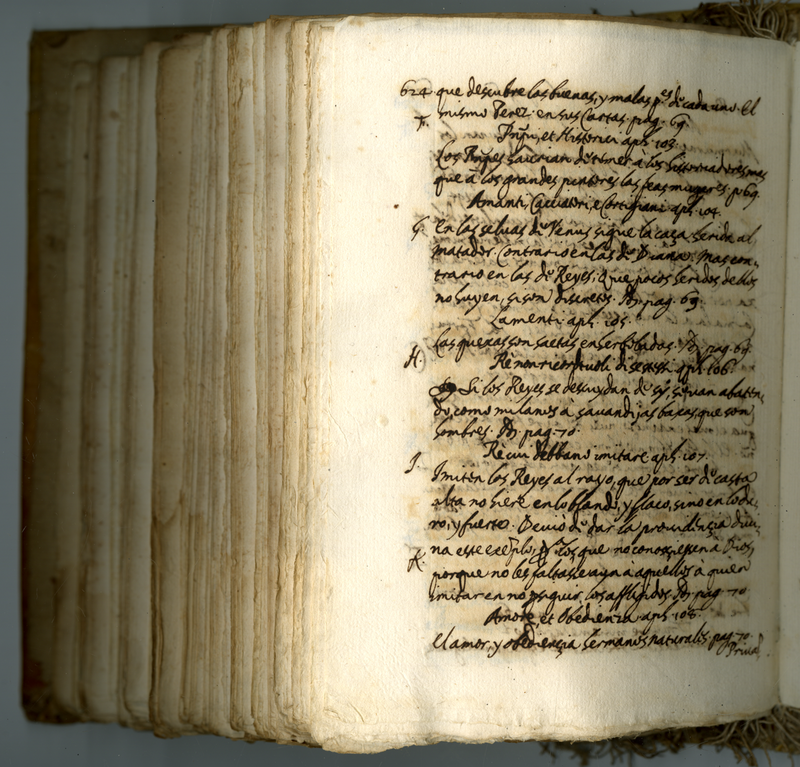 624 que descubre las buenas, y malas p.es de cada uno. El
mismo Perez en sus Cartas pag. 69.
F. et Historici aph. 103.
Los deurian temer à los historiadores mas
que à los grandes pintores las feas mugeres. p 69.
Amanti, Cacciatori, e Cortigiani aph. 104.
G. En las seluas de Venus sigue la caça herida al
matador. Contrario en las de Diana. Mas con-
trario en las de Reyes; Que pocos heridos dellos
no huyen, si son discretos. pag. 69.
Lamenti aph. 105.
Las quexas son saetas enherboladas. pag. 69.
H. Rè non ricordeuoli di se stessi aph. 106.
Si los Reyes se descuydan de sy, se van abatien-
do, como milanos à sauandijas baxas que son
hombres. pag. 70.
Rè cui debbano imitare aph. 107.
I. Imiten los Reyes al rayo, que por ser de casta
alta no hiere en lo blando, y flaco, sino en lo du-
ro, y fuerte. Deuiò de dar la prouidençia diui-
na este exemplo, los que no conosçiessen à Dios,
K. porque no les faltasse à aquellos à quien
imitar en no los afligidos. pag. 70
Amore, et Obedienza aph. 108.
El amor, y obediençia hermanos naturales pag. 70